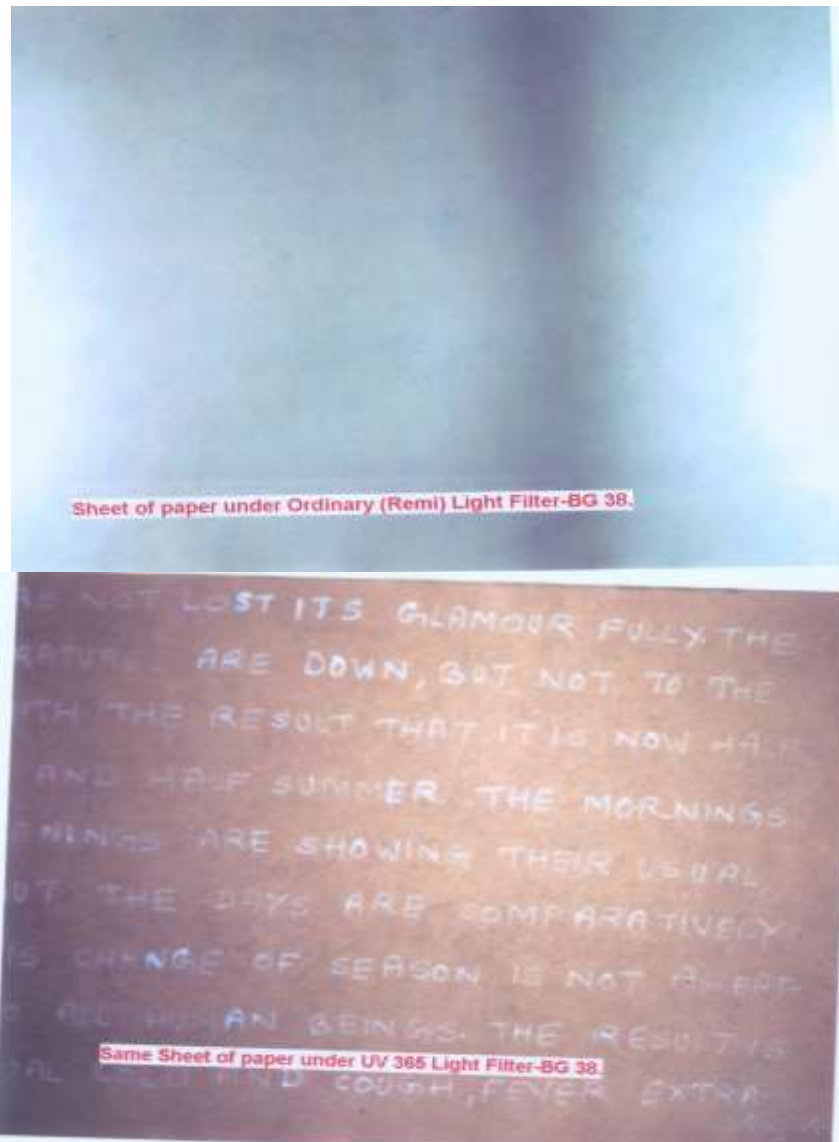 Sheet of paper under Ordinary (Remi) Light Filter-BG 38.
NOT LOST ITS GLAMOUR FULLY. THE
RATURE ARE DOWN, BUT NOT TO THE
ITH THE RESULT THAT IT IS NOW HALF
AND HALF SUMMER. THE MORNINGS
ENINGS ARE SHOWING THEIR USUAL,
UT THE DAYS ARE COMPARATIVELY
IS CHANGE OF SEASON IS NOT
ALL HUMAN BEINGS. THE RESULT IS
Same Sheet of paper under UV 365 Light Filter-BG 38.
AND COUGH, FEVER EXTRA-